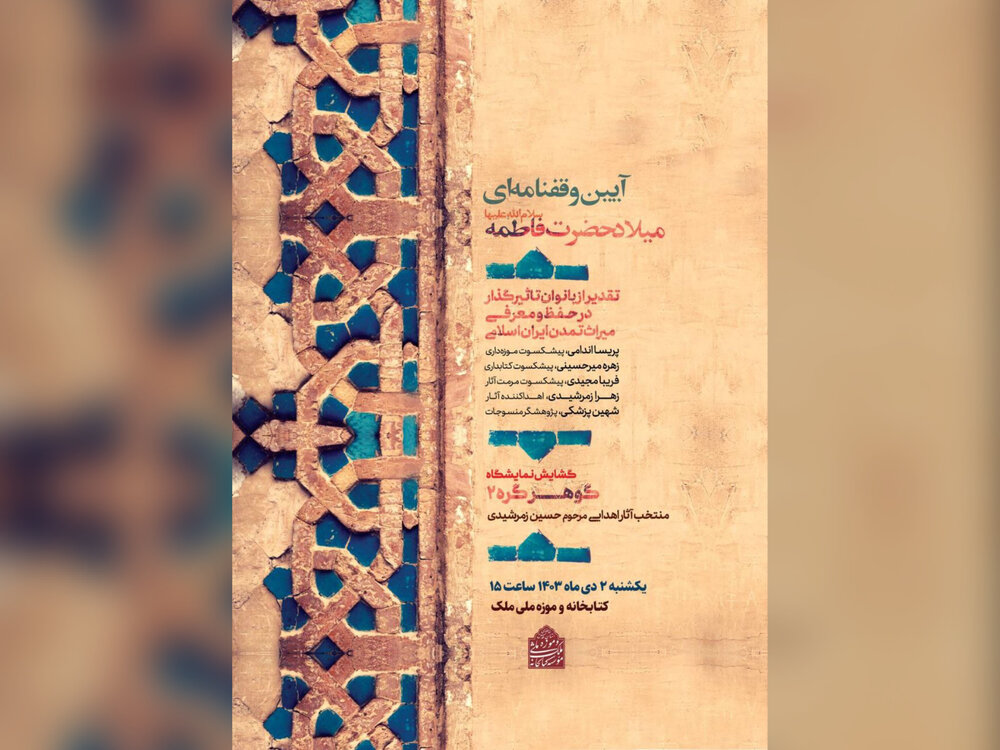 آیین وقفنامه‌ای
سلام الله علیها
میلاد حضرت فاطمه
تقدیر از بانوان تاثیرگذار
در حفظ و معرفی
میراث تمدن ایران اسلامی
پریسا اندامی، پیشکسوت موزه‌داری
زهره میرحسینی، پیشکسوت کتابداری
فریبا مجیدی، پیشکسوت مرمت آثار
زهرا زمرشیدی، اهداکننده آثار
شهین پزشکی، پژوهشگر منسوجات
گشایش نمایشگاه
گوهر گره ۲
منتخب آثار اهدایی مرحوم حسین زمرشیدی
یکشنبه ۲ دی ماه ۱۴۰۳ ساعت ۱۵
کتابخانه و موزه ملی ملک